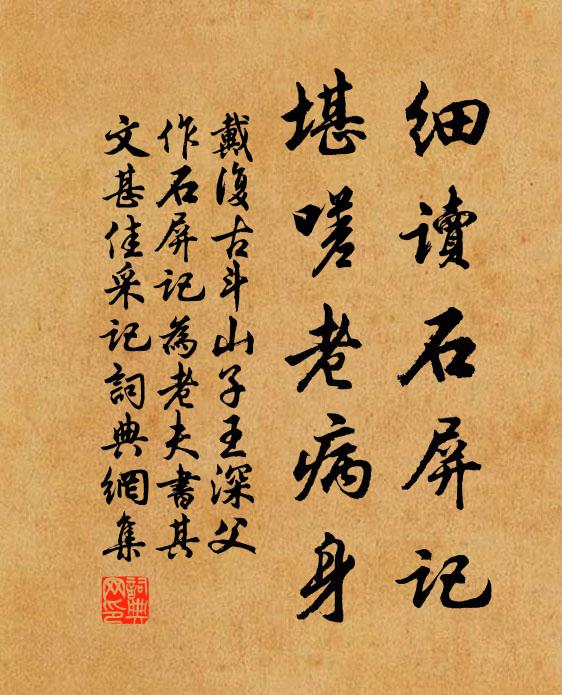 细读石屏记
堪嗟老病身
戴復古斗山子王深父
作石屏记為老夫書其
文甚佳采记詞典網集
詞典網印